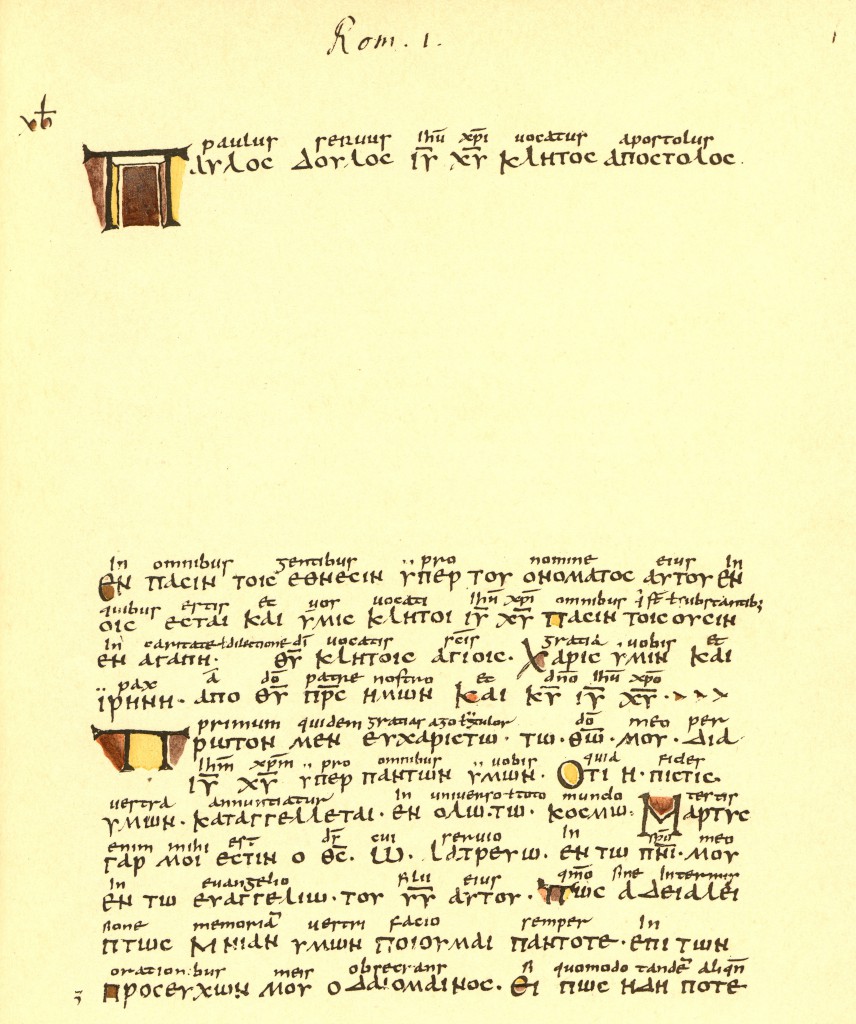 Rom. 1.
paulus servus ihū xpī vocatus apostolus
Παυλος δουλος ιῡ χῡ κλητος αποστολος.
In omnibus gentibus pro nomine eius In
εν πασιν τοις εθνεσιν ϋπερ του ονοματος αυτου εν
quibus estis et vos vocati ihū xpī omnibus
οις εσται και ϋμις κλητοι ιῡ χῡ πασιν τοις ουσιν
in caritate dilectione dī vocatis scis gratia vobis et
εν αγαπη· θῡ κλητοις αγιοις. Χαρις ϋμιν και
pax ā dō patre nostro et dño ihū xpō
ϊρηνη· απο θῡ πρ̄ς ημων και κῡ ιῡ χῡ·
primum quidem gratias ago dō meo per
Πρωτον μεν ευχαριστω· τω· θω̄· μου· δια
ihm̄ xpm̄ pro omnibus vobis quia fides
ιῡ χῡ ϋπερ παντων ϋμων· Οτι η· πιστις
vestra annuntiatur In universo toto mundo testis
υμων· καταγγελλεται· εν ολω· τω· κοσμω· Μαρτυς
enim mihi est dš cui servio In spū meo
γαρ μοι εστιν ο θς̄. ω. λατρευω. εν τω πνῑ· μου
In evangelio filii eius qmō sine Intermis
εν τω ευαγγελιω· του ῡῡ αυτου· πως αδειαλει
sione memoriā vestri facio semper In
πτως μνιαν υμων ποιουμαι παντοτε· επι των
orationibus meis obsecrans si quomodo tandē aliqn̄
προσευχων μου ο δαιομαινος· ει πως ηδη ποτε